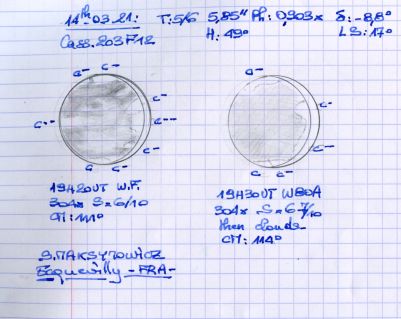 14th 03 21: T: 5/6 5,85" Ph: 0,903x δ: -8,8°
Cass. 203 F12 H: 49° LS: 17°
c- c-
c- c-
c-- c-- c-
c- c-
c c- c c-
19H20UT W.F. 19H30UT W80A
304x S=6/10 304x S=6-7/10
CM: 111° then clouds-
CM: 114°
S. MAKSYMOWICZ
Ecquevilly - FRA -